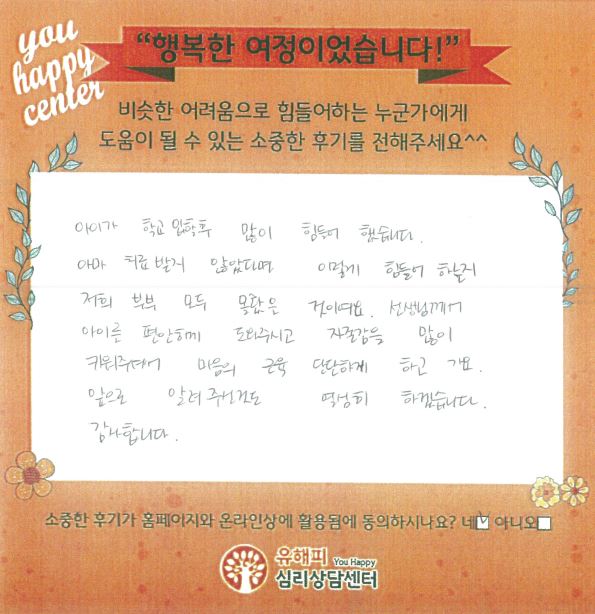 you
happy
center
“행복한 여정이었습니다!”
비슷한 어려움으로 힘들어하는 누군가에게
도움이 될 수 있는 소중한 후기를 전해주세요^^
아이가 학교 입학후 많이 힘들어 했습니다.
아마 치료 받지 않았다면 이렇게 힘들어 하는지
저희 부부 모두 몰랐을 것이예요. 선생님께서
아이를 편안하게 도와주시고 자존감을 많이
키워주셔서 마음의 근육 단단하게 하고 가요.
앞으로 알려 주신것도 열심히 하겠습니다.
감사합니다.
소중한 후기가 홈페이지와 온라인상에 활용됨에 동의하시나요? 네☑ 아니오☐
유해피 You Happy
심리상담센터